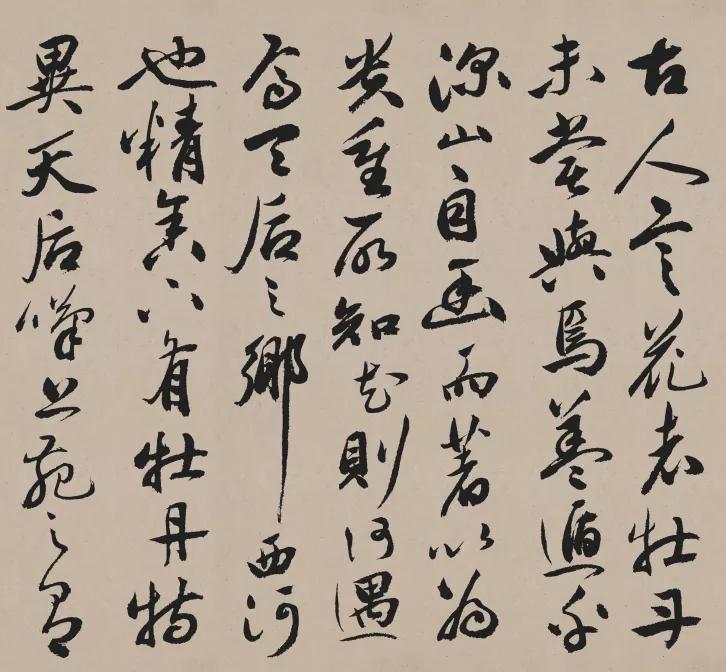 古人言花者牡丹
未嘗與焉蓋遁於
深山自幽而著以為
貴重所知花則何遇
焉天后之鄉西河
也精舍下有牡丹特
異天后嘆上苑之有